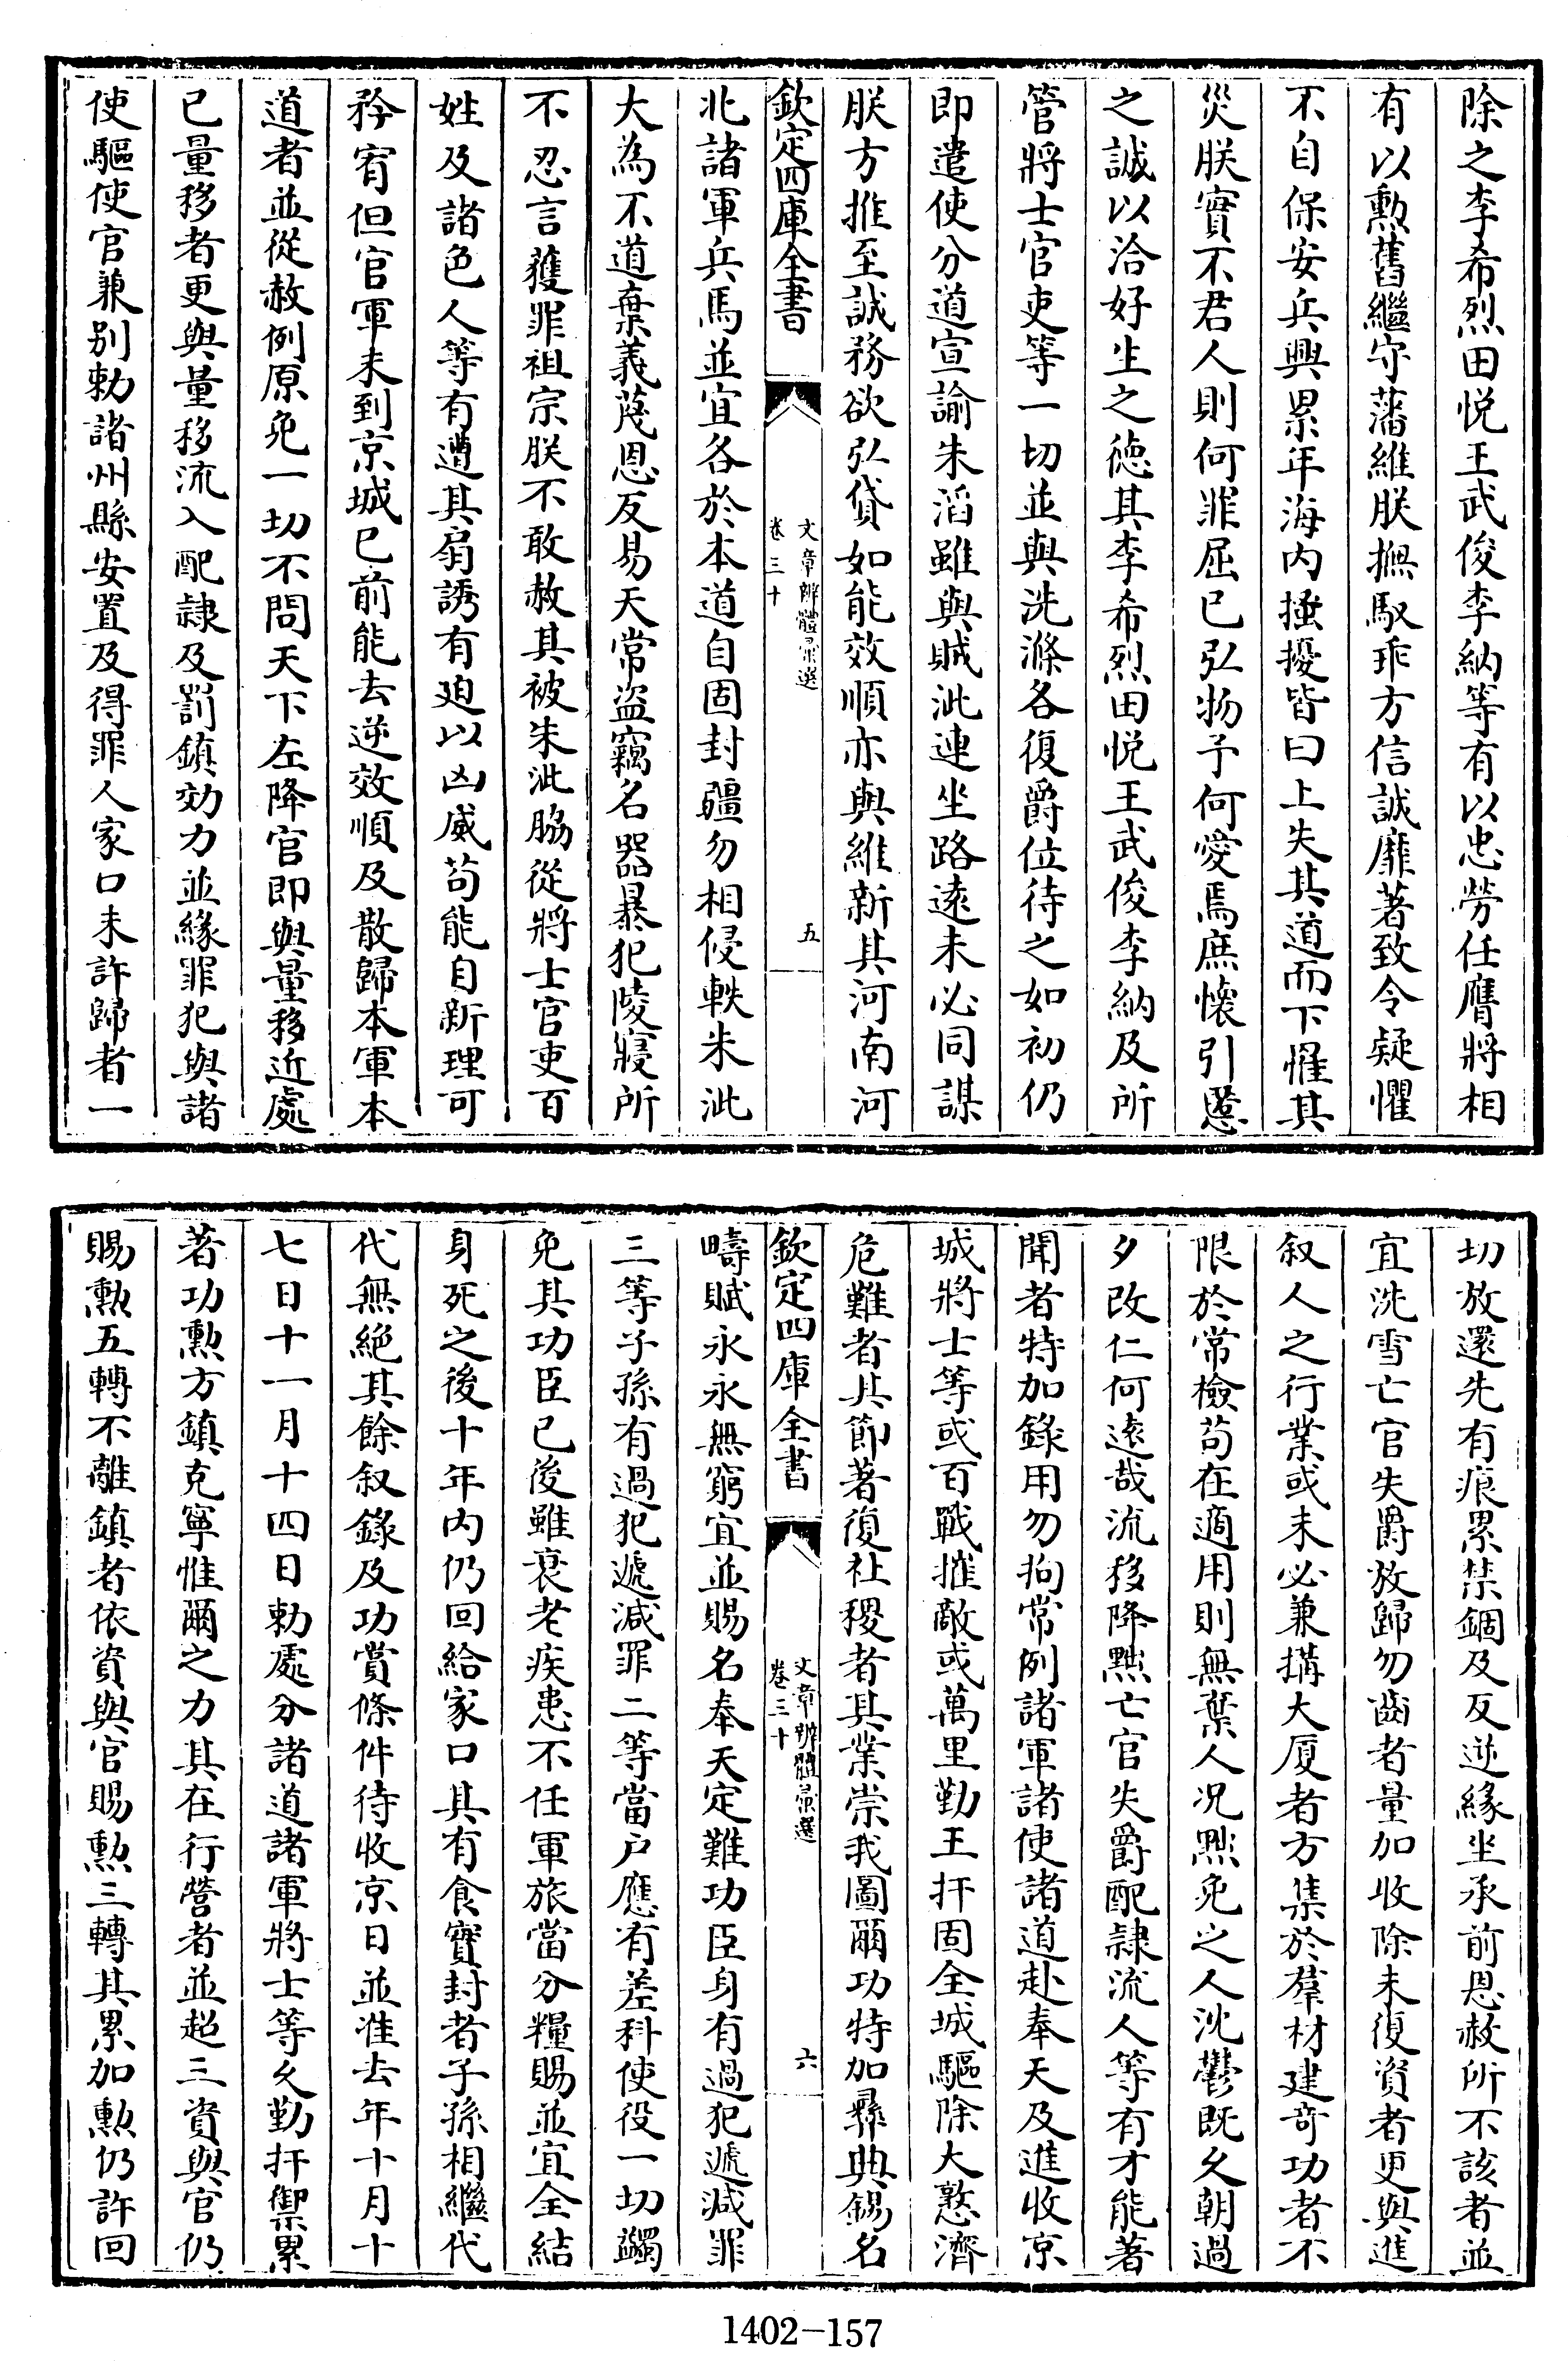 除之李希烈田悦王武俊李納等有以忠勞任膺將相
有以勲舊繼守藩維朕撫馭乖方信誠靡著致令疑懼
不自保安兵興累年海内擾擾皆曰上失其道而下罹其
災朕實不君人則何罪屈已弘物予何愛焉庶懷引慝
之誠以洽好生之徳其李希烈田悦王武俊李納及所
管將士官吏等一切並與洗滌各復爵位待之如初仍
即遣使分道宣諭朱滔雖與賊泚連坐路遠未必同謀
朕方推至誠務欲弘貸如能效順亦與維新其河南河
欽定四庫全書
文章辨體彚選
卷三十
五
北諸軍兵馬並宜各於本道自固封疆勿相侵軼朱泚
大為不道棄義蔑恩反易天常盜竊名器暴犯陵寢所
不忍言獲罪祖宗朕不敢赦其被朱泚脇從將士官吏百
姓及諸色人等有遭其扇誘有廹以凶威苟能自新理可
矜宥但官軍未到京城已前能去逆效順及散歸本軍本
道者並從赦例原免一切不問天下左降官即與量移近處
已量移者更與量移流入配隷及罰鎮効力並緣罪犯與諸
使驅使官兼别勅諸州縣安置及得罪人家口未許歸者一
切放還先有痕累禁錮及反逆緣坐承前恩赦所不該者並
宜洗雪亡官失爵放歸勿齒者量加收除未復資者更與進
叙人之行業或未必兼搆大厦者方集於羣材建奇功者不
限於常檢苟在適用則無棄人况黜免之人沈鬱既久朝過
夕改仁何遠哉流移降黜亡官失爵配隷流人等有才能著
聞者特加錄用勿拘常例諸軍諸使諸道赴奉天及進收京
城將士等或百戰摧敵或萬里勤王扞固全城驅除大憝濟
危難者其節著復社稷者其業崇我圖爾功特加彞典錫名
欽定四庫全書
文章辨體彚選
卷三十
六
疇賦永永無窮宜並賜名奉天定難功臣身有過犯遞減罪
三等子孫有過犯遞減罪二等當户應有差科使役一切蠲
免其功臣已後雖衰老疾患不任軍旅當分糧賜並宜全結
身死之後十年内仍回給家口其有食實封者子孫相繼代
代無絶其餘叙錄及功賞條件待收京日並准去年十月十
七日十一月十四日勅處分諸道諸軍將士等久勤扞禦累
著功勲方鎮克寧惟爾之力其在行營者並超三資與官仍
賜勲五轉不離鎮者依資與官賜勲三轉其累加勲仍許回
1402-157